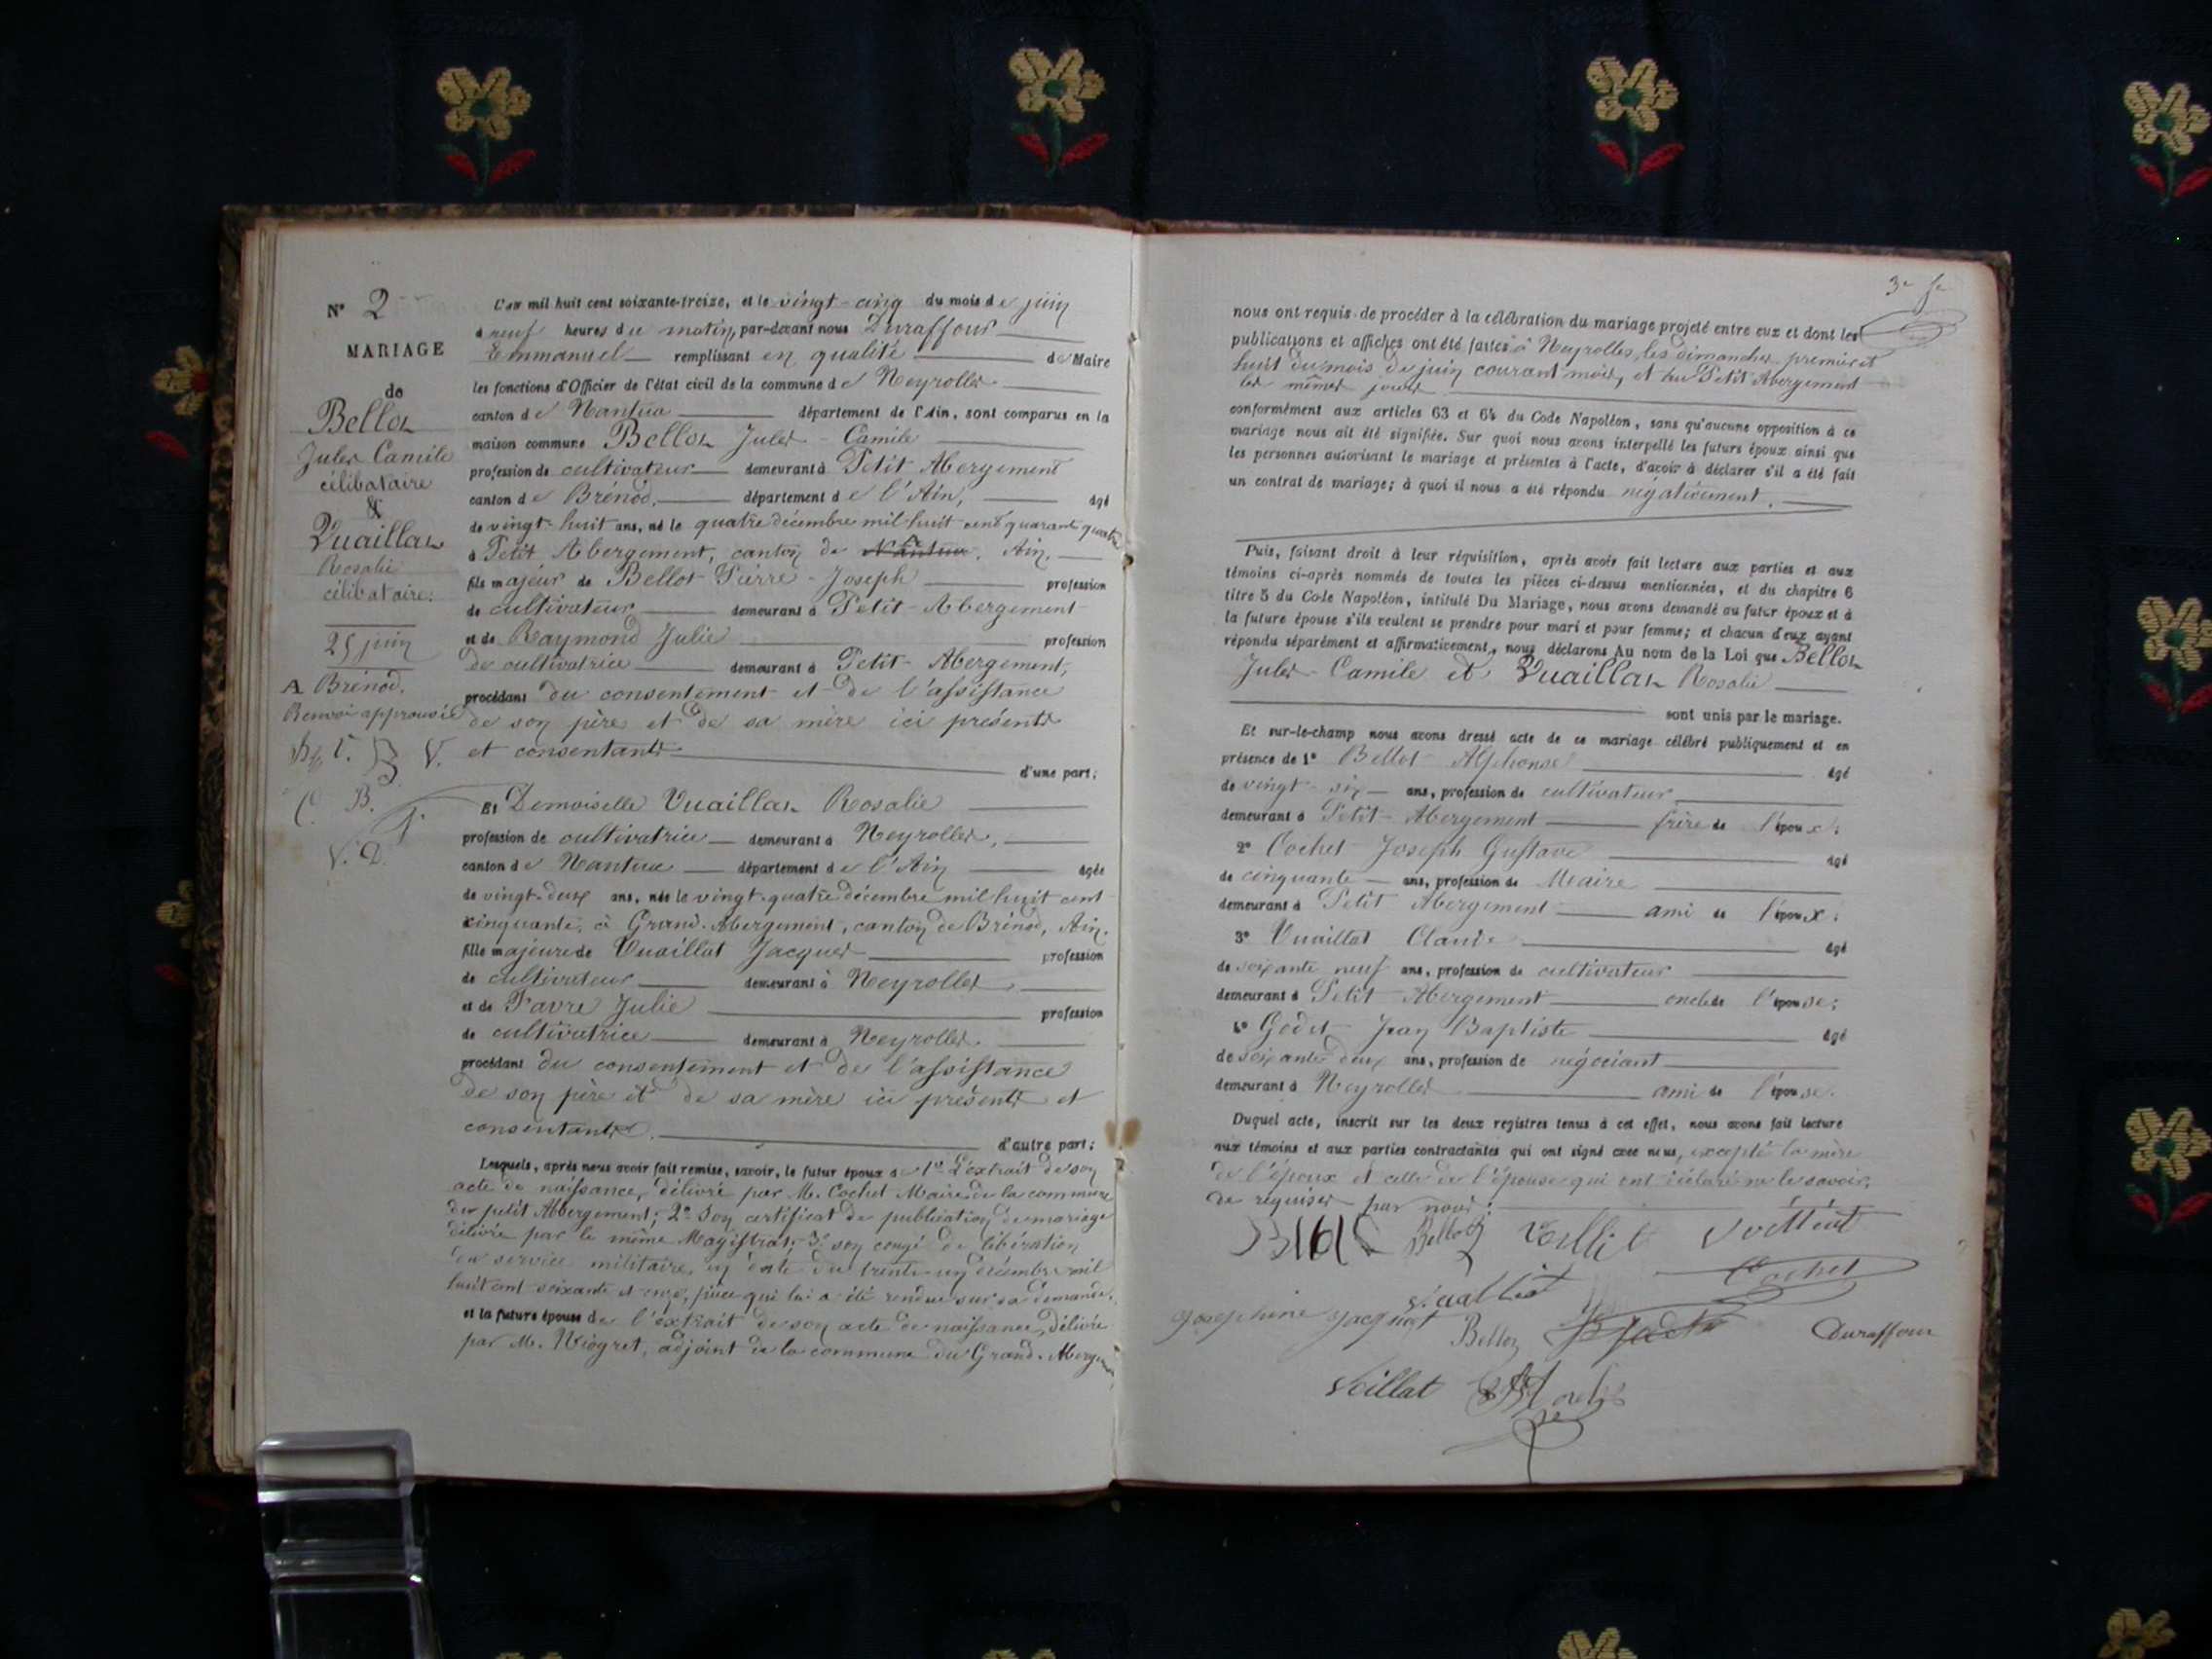 N° 2
MARIAGE
de
Bellot
Jules Camile
célibataire
&
Vuaillat
Rosalie
célibataire.
25 juin
A Brénod.
Renvoi approuvé
B. V.
C. B.
V. D.
L'an mil huit cent soixante-treize, et le vingt-cinq du mois de juin
à neuf heures du matin, par-devant nous Duraffour
Emmanuel remplissant en qualité de Maire
les fonctions d'Officier de l'état civil de la commune de Neyrolles
canton de Nantua département de l'Ain, sont comparus en la
maison commune Bellot Jules-Camile
profession de cultivateur demeurant à Petit Abergement
canton de Brénod, département de l'Ain, âgé
de vingt-huit ans, né le quatre décembre mil huit cent quarante quatre
à Petit Abergement, canton de Nantua, Ain.
fils majeur de Bellot Pierre-Joseph profession
de cultivateur demeurant à Petit-Abergement
et de Raymond Julie profession
de cultivatrice demeurant à Petit-Abergement,
procédant du consentement et de l'assistance
de son père et de sa mère ici présents
et consentants
d'une part;
Et Demoiselle Vuaillat Rosalie
profession de cultivatrice demeurant à Neyrolles,
canton de Nantua département de l'Ain âgée
de vingt-deux ans, née le vingt-quatre décembre mil huit cent
cinquante, à Grand-Abergement, canton de Brénod, Ain.
fille majeure de Vuaillat Jacques profession
de cultivateur demeurant à Neyrolles
et de Favre Julie profession
de cultivatrice demeurant à Neyrolles
procédant du consentement et de l'assistance
de son père et de sa mère ici présents et
consentants. d'autre part;
Lesquels, après nous avoir fait remise, savoir, le futur époux de 1° l'extrait de son
acte de naissance, délivré par M. Cochet Maire de la commune
du petit Abbergement; 2° Son certificat de publication de mariage
délivré par le même Magistrat; 3° son congé de libération
du service militaire, en date du trente-un décembre mil
huit cent soixante et onze, pièce qui lui a été rendue sur sa demande.
et la future épouse de l'extrait de son acte de naissance, délivré
par M. Niogret, adjoint de la commune du Grand-Aberge
nous ont requis de procéder à la célébration du mariage projeté entre eux et dont les
publications et affiches ont été faites à Neyrolles, les dimanches premier et
huit du mois de juin courant mois, et au Petit Abergement
les mêmes jours
conformément aux articles 63 et 64 du Code Napoléon, sans qu'aucune opposition à ce
mariage nous ait été signifiée. Sur quoi nous avons interpellé les futurs époux ainsi que
les personnes autorisant le mariage et présentes à l'acte, d'avoir à déclarer s'il a été fait
un contrat de mariage; à quoi il nous a été répondu négativement.
Puis, faisant droit à leur réquisition, après avoir fait lecture aux parties et aux
témoins ci-après nommés de toutes les pièces ci-dessus mentionnées, et du chapitre 6
titre 5 du Code Napoléon, intitulé Du Mariage, nous avons demandé au futur époux et à
la future épouse s'ils veulent se prendre pour mari et pour femme; et chacun d'eux ayant
répondu séparément et affirmativement, nous déclarons Au nom de la Loi que Bellot
Jules-Camile et Vuaillat Rosalie
sont unis par le mariage.
Et sur-le-champ nous avons dressé acte de ce mariage célébré publiquement et en
présence de 1° Bellot Alphonse âgé
de vingt-six ans, profession de cultivateur
demeurant à Petit-Abergement frère de l'époux;
2° Cochet Joseph Gustave âgé
de cinquante ans, profession de Maire
demeurant à Petit Abergement ami de l'époux;
3° Vuaillat Claude âgé
de soixante neuf ans, profession de cultivateur
demeurant à Petit-Abergement oncle de l'épouse;
4° Godet Jean Baptiste âgé
de soixante deux ans, profession de négociant
demeurant à Neyrolles ami de l'épouse.
Duquel acte, inscrit sur les deux registres tenus à cet effet, nous avons fait lecture
aux témoins et aux parties contractantes qui ont signé avec nous, excepté la mère
de l'époux et celle de l'épouse qui ont déclaré ne le savoir,
de requises par nous.
Bellot
Cochet
Josephine Jacquot
Bellot
Duraffour